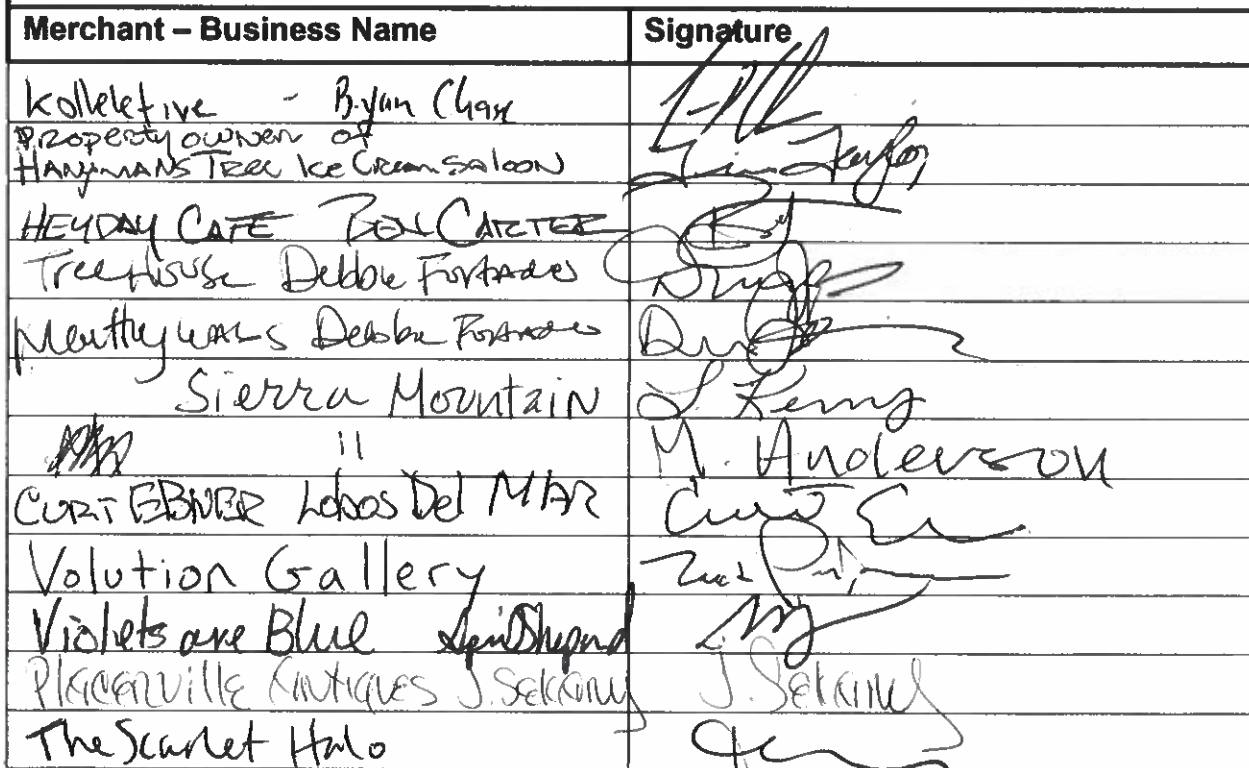 Merchant – Business Name Signature
Kollektive - Ryan Chase
Property owner of
HANGMANS TREE Ice Cream SALOON Tim Taylor
HEYDAY CAFE BEN CARTER
Treehouse Debbie Furtado
Debbie Furtado
Sierra Mountain L. Kerry
" M. Anderson
CURT EBNER Lobos Del MAR Curt E
Volution Gallery
Violets are Blue
Placerville Antiques J. Sekany J. Sekany
The Scarlet Halo